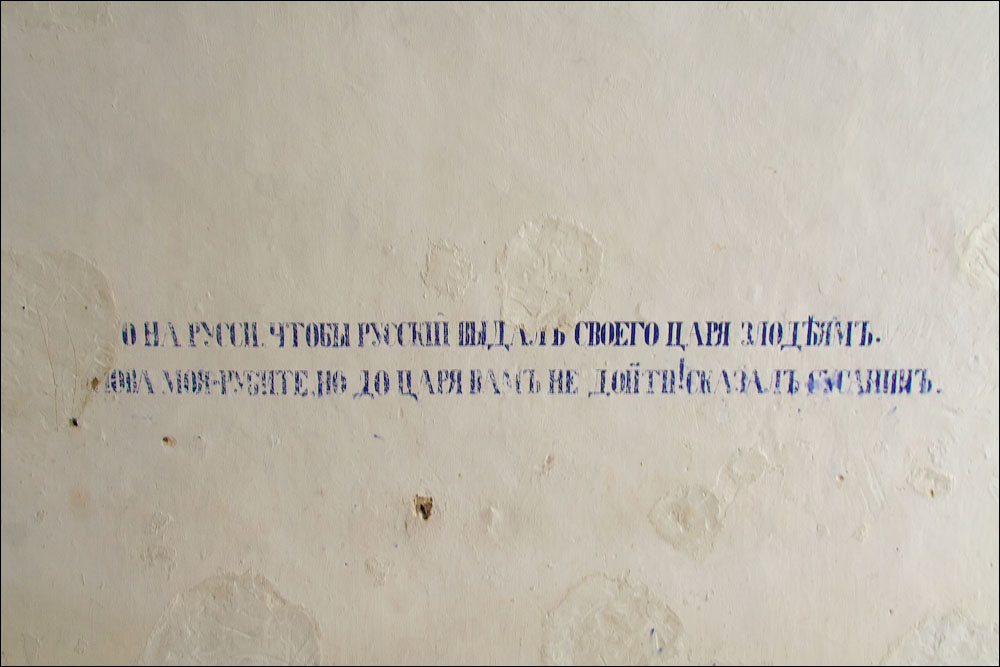 О НА РУССИ. ЧТОБЫ РУССКІЙ ВЫДАЛЪ СВОЕГО ЦАРЯ ЗЛОДѢЯМЪ.
МОЯ-РУБИТЕ, НО ДО ЦАРЯ ВАМЪ НЕ ДОЙТИ! СКАЗАЛЪ СУСАНИНЪ.